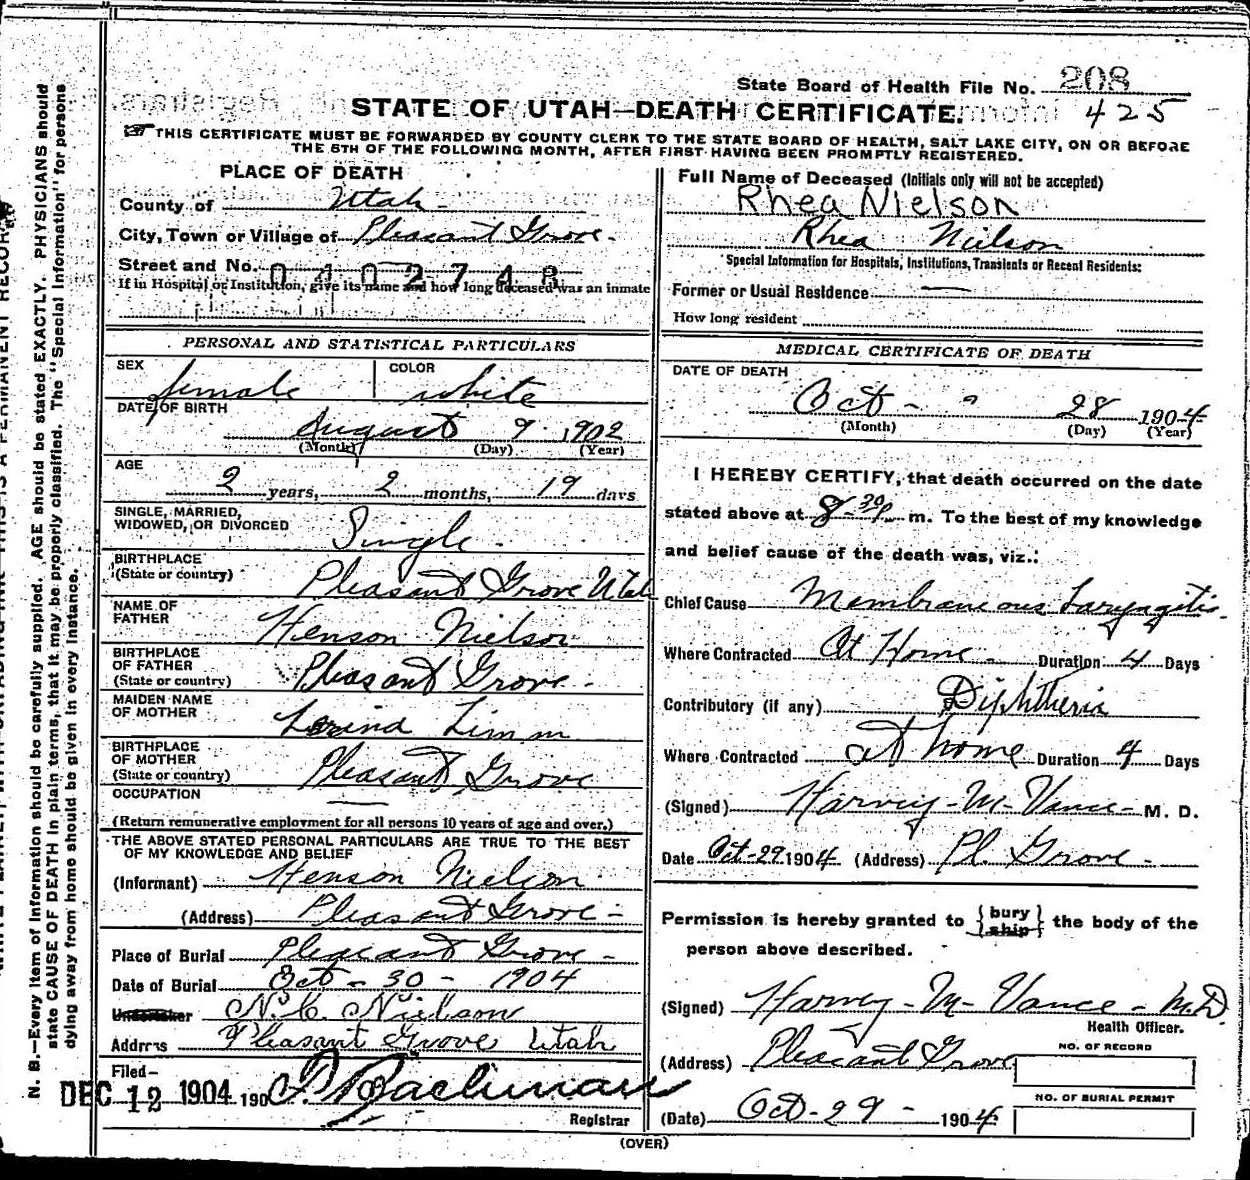 State Board of Health File No. 208
425
STATE OF UTAH—DEATH CERTIFICATE.
THIS CERTIFICATE MUST BE FORWARDED BY COUNTY CLERK TO THE STATE BOARD OF HEALTH, SALT LAKE CITY, ON OR BEFORE
THE 5TH OF THE FOLLOWING MONTH, AFTER FIRST HAVING BEEN PROMPTLY REGISTERED.
PLACE OF DEATH
County of Utah
City, Town or Village of Pleasant Grove.
Street and No. 0402748
If in Hospital or Institution, give its name and how long deceased was an inmate
Full Name of Deceased (Initials only will not be accepted)
Rhea Nielson
Rhea Nielson
Special Information for Hospitals, Institutions, Transients or Recent Residents:
Former or Usual Residence —
How long resident
PERSONAL AND STATISTICAL PARTICULARS
SEX female COLOR white
DATE OF BIRTH
August 9 1902
(Month) (Day) (Year)
AGE
2 years, 2 months, 19 days
SINGLE, MARRIED,
WIDOWED, OR DIVORCED Single.
BIRTHPLACE
(State or country) Pleasant Grove Utah
NAME OF
FATHER Henson Nielson
BIRTHPLACE
OF FATHER
(State or country) Pleasant Grove -
MAIDEN NAME
OF MOTHER
BIRTHPLACE
OF MOTHER
(State or country) Pleasant Grove
OCCUPATION —
(Return remunerative employment for all persons 10 years of age and over.)
THE ABOVE STATED PERSONAL PARTICULARS ARE TRUE TO THE BEST
OF MY KNOWLEDGE AND BELIEF
(Informant) Henson Nielson
(Address) Pleasant Grove -
Place of Burial Pleasant Grove -
Date of Burial Oct - 30 - 1904
Undertaker N. C. Nielson
Address Pleasant Grove Utah
Filed—
DEC 12 1904 190
Registrar
MEDICAL CERTIFICATE OF DEATH
DATE OF DEATH
Oct - " 28 1904
(Month) (Day) (Year)
I HEREBY CERTIFY, that death occurred on the date
stated above at 8-30 p. m. To the best of my knowledge
and belief cause of the death was, viz.:
Chief Cause Membraneous Laryngitis
Where Contracted At Home - Duration 4 Days
Contributory (if any) Diphtheria
Where Contracted at home Duration 4 Days
(Signed) Harvey - M - Vance - M. D.
Date Oct-29 1904 (Address) Pl. Grove -
Permission is hereby granted to {bury
ship} the body of the
person above described.
(Signed) Harvey - M - Vance - M.D.
Health Officer.
(Address) Pleasant Grove
NO. OF RECORD
NO. OF BURIAL PERMIT
(Date) Oct - 29 - 1904
(OVER)
N. B.—Every item of information should be carefully supplied. AGE should be stated EXACTLY. PHYSICIANS should
state CAUSE OF DEATH in plain terms, that it may be properly classified. The "Special Information" for persons
dying away from home should be given in every instance.